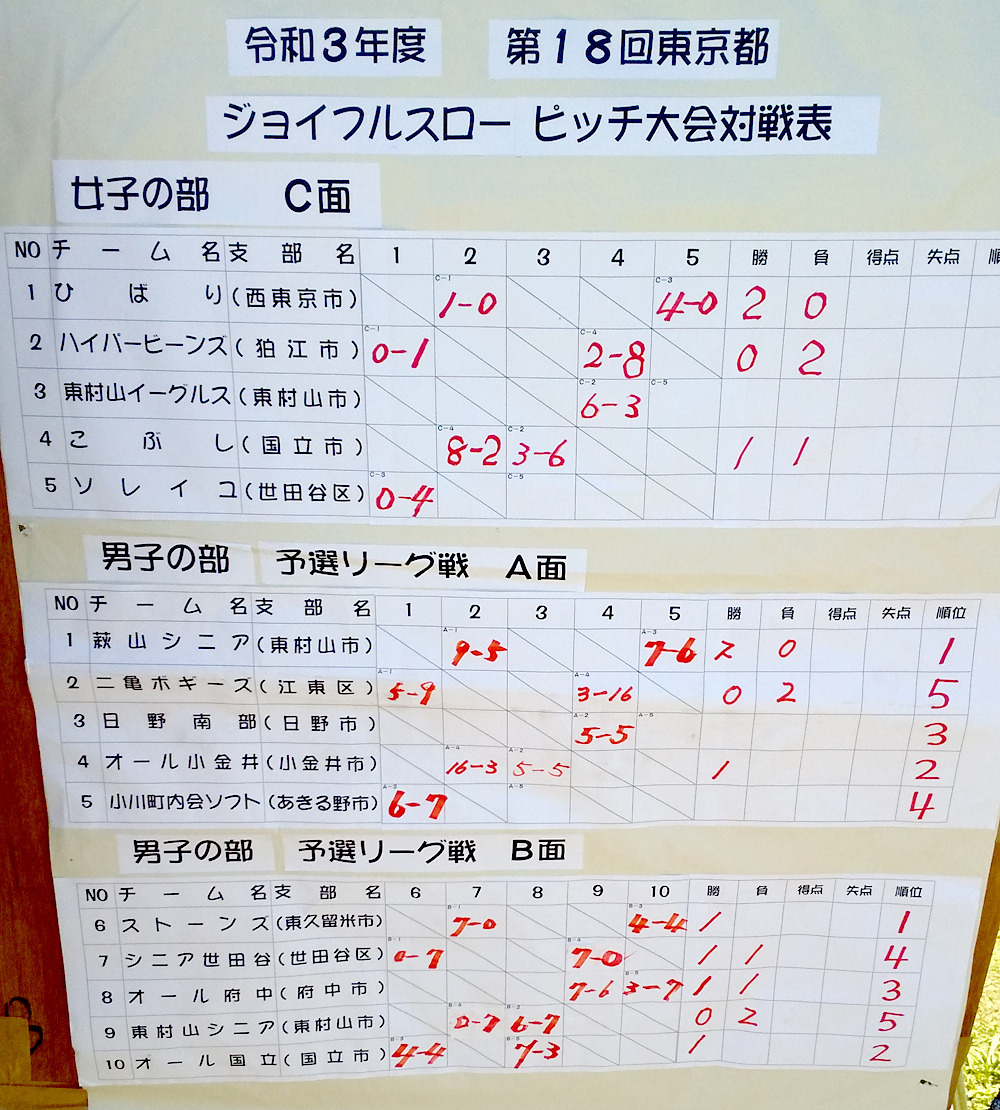 令和3年度 第18回東京都
ジョイフルスロー ピッチ大会対戦表
女子の部 C面
NO チーム名 支部名 1 2 3 4 5 勝 負 得点 失点 順
C-1 C-3
1 ひばり (西東京市) 1-0 4-0 2 0
C-1 C-4
2 ハイパービーンズ (狛江市) 0-1 2-8 0 2
C-2 C-5
3 東村山イーグルス (東村山市) 6-3
C-4 C-2
4 こぶし (国立市) 8-2 3-6 1 1
C-3 C-5
5 ソレイユ (世田谷区) 0-4
男子の部 予選リーグ戦 A面
NO チーム名 支部名 1 2 3 4 5 勝 負 得点 失点 順位
A-1 A-3
1 萩山シニア (東村山市) 9-5 7-6 2 0 1
A-1 A-4
2 二亀ボギーズ (江東区) 5-9 3-16 0 2 5
A-2 A-5
3 日野南部 (日野市) 5-5 3
A-4 A-2
4 オール小金井 (小金井市) 16-3 5-5 1 2
A-3 A-5
5 小川町内会ソフト (あきる野市) 6-7 4
男子の部 予選リーグ戦 B面
NO チーム名 支部名 6 7 8 9 10 勝 負 得点 失点 順位
B-1 B-3
6 ストーンズ (東久留米市) 7-0 4-4 1 1
B-1 B-4
7 シニア世田谷 (世田谷区) 0-7 7-0 1 1 4
B-5
8 オール府中 (府中市) 7-6 3-7 1 1 3
B-4 B-2
9 東村山シニア (東村山市) 0-7 6-7 0 2 5
B-3 B-5
10 オール国立 (国立市) 4-4 7-3 1 2